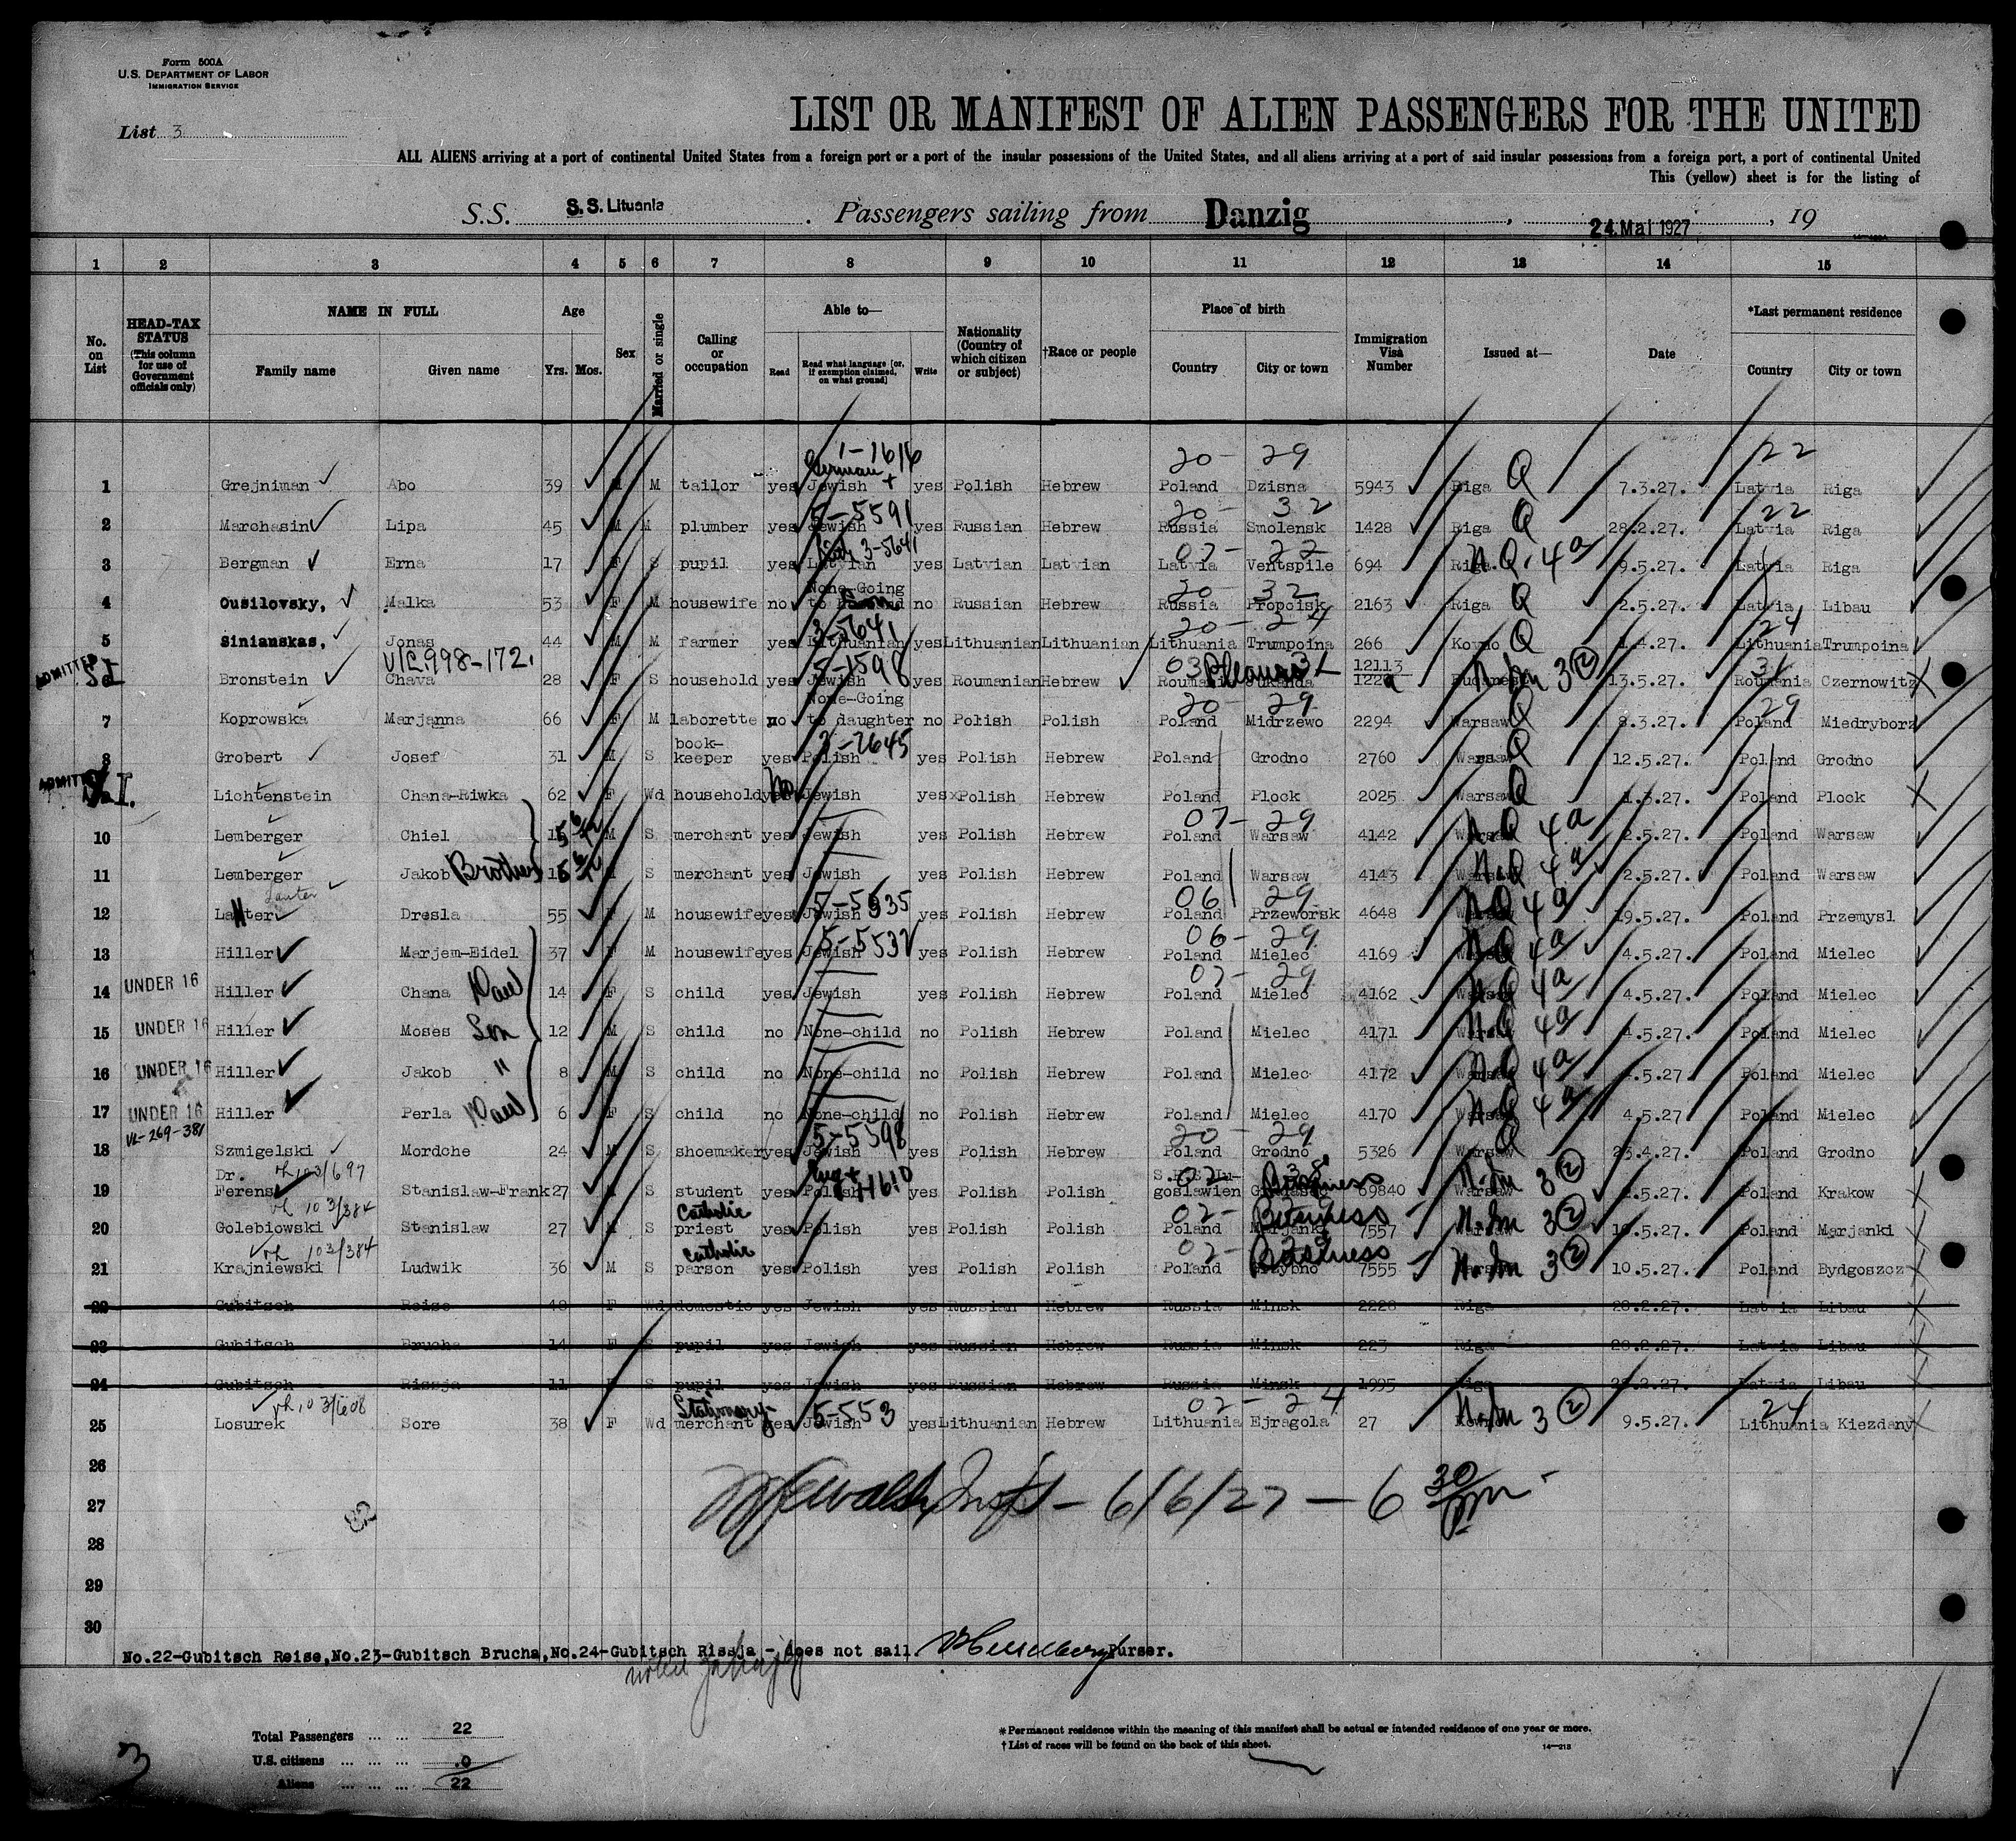 Form 500A
U.S. DEPARTMENT OF LABOR
IMMIGRATION SERVICE
List 3
LIST OR MANIFEST OF ALIEN PASSENGERS FOR THE UNITED
ALL ALIENS arriving at a port of continental United States from a foreign port or a port of the insular possessions of the United States, and all aliens arriving at a port of said insular possessions from a foreign port, a port of continental United
This (yellow) sheet is for the listing of
S.S. S.S. Lituania . Passengers sailing from Danzig , 24. Mai 1927 , 19
1 2 3 4 5 6 7 8 9 10 11 12 13 14 15
No. on List
HEAD-TAX STATUS (This column for use of Government officials only)
NAME IN FULL Family name Given name
Age Yrs. Mos.
Sex
Married or single
Calling or occupation
Able to— Read Read what language [or, if exemption claimed, on what ground] Write
Nationality (Country of which citizen or subject)
†Race or people
Place of birth Country City or town
Immigration Visa Number
Issued at—
Date
*Last permanent residence Country City or town
1-1616 20- 29 22
German +
1 Grejniman Abo 39 M M tailor yes Jewish yes Polish Hebrew Poland Dzisna 5943 Riga Q 7.3.27. Latvia Riga
5-5591 20- 32 22
2 Marchasin Lipa 45 M M plumber yes Jewish yes Russian Hebrew Russia Smolensk 1428 Riga Q 28.2.27. Latvia Riga
3-5641 07- 22
3 Bergman Erna 17 F S pupil yes Latvian yes Latvian Latvian Latvia Ventspile 694 Riga N.Q. 4a 9.5.27. Latvia Riga
None-Going 20- 32
4 Ousilovsky, Malka 53 F M housewife no to no Russian Hebrew Russia Propoisk 2163 Riga Q 2.5.27. Latvia Libau
3-5641 20- 24 24
5 Sinianskas, Jonas 44 M M farmer yes Lithuanian yes Lithuanian Lithuanian Lithuania Trumpoina 266 Kovno Q 1.4.27. Lithuania Trumpoina
V/L 998-172. 5-1598 03 31 12113
ADMITTED SI Bronstein Chava 28 F S household yes Jewish yes Roumanian Hebrew Roumania 1228 Bucharest 3 (2) 13.5.27. Roumania Czernowitz
None-Going 20- 29 29
7 Koprowska Marjanna 66 F M laborette no to daughter no Polish Polish Poland Midrzewo 2294 Warsaw Q 8.3.27. Poland Miedryborz
book- 2-2645
8 Grobert Josef 31 M S keeper yes Polish yes Polish Hebrew Poland Grodno 2760 Warsaw Q 12.5.27. Poland Grodno
ADMITTED Lichtenstein Chana-Riwka 62 F Wd household yes No Jewish yes Polish Hebrew Poland Plock 2025 Warsaw Q 1.3.27. Poland Plock
07- 29
10 Lemberger Chiel M S merchant yes Jewish yes Polish Hebrew Poland Warsaw 4142 Warsaw N.Q 4a 2.5.27. Poland Warsaw
11 Lemberger Jakob Brothers S merchant yes Jewish yes Polish Hebrew Poland Warsaw 4143 Warsaw N.Q 4a 2.5.27. Poland Warsaw
Lauter 5-5935 06 29
12 Dresla 55 F M housewife yes Jewish yes Polish Hebrew Poland Przeworsk 4648 Warsaw N.Q 4a 19.5.27. Poland Przemysl
5-5532 06- 29
13 Hiller Marjem-Eidel 37 F M housewife yes Jewish yes Polish Hebrew Poland Mielec 4169 Warsaw N.Q 4a 4.5.27. Poland Mielec
07- 29
14 UNDER 16 Hiller Chana Dau 14 F S child yes Jewish yes Polish Hebrew Poland Mielec 4162 Warsaw N.Q 4a 4.5.27. Poland Mielec
15 UNDER 16 Hiller Moses Son 12 M S child no None-child no Polish Hebrew Poland Mielec 4171 Warsaw N.Q 4a 4.5.27. Poland Mielec
16 UNDER 16 Hiller Jakob " 8 M S child no None-child no Polish Hebrew Poland Mielec 4172 Warsaw N.Q 4a 4.5.27. Poland Mielec
17 UNDER 16 Hiller Perla Dau 6 F S child no None-child no Polish Hebrew Poland Mielec 4170 Warsaw N.Q 4a 4.5.27 Poland Mielec
VL-269-381 5-5598 20- 29
18 Szmigelski Mordche 24 M S shoemaker yes Jewish yes Polish Hebrew Poland Grodno 5326 Warsaw Q 23.4.27. Poland Grodno
Dr. vh 103/697 Eng+ 02
19 Ferens Stanislaw-Frank 27 M S student yes Polish yes Polish Polish goslawien Business 69840 Warsaw 3 (2) Poland Krakow
vh 103/384 Catholic 02-
20 Golebiowski Stanislaw 27 M S priest yes Polish yes Polish Polish Poland Business 7557 Warsaw 3 (2) 10.5.27. Poland Marjanki
vh 103/384 Catholic 02-
21 Krajniewski Ludwik 36 M S parson yes Polish yes Polish Polish Poland Business 7555 Warsaw 3 (2) 10.5.27. Poland Bydgoszcz
22 Gubitsch Reise 48 F Wd domestic yes Jewish yes Russian Hebrew Russia Minsk 2228 Riga 28.2.27. Latvia Libau
23 Gubitsch Brucha 14 F S pupil yes Jewish yes Russian Hebrew Russia Minsk 223 Riga 28.2.27. Latvia Libau
24 Gubitsch Rissja 11 F S pupil yes Jewish yes Russian Hebrew Russia Minsk 1995 Riga Latvia Libau
vh 103/608 Stationery 5-553 02- 24 24
25 Losurek Sore 38 F Wd merchant yes Jewish yes Lithuanian Hebrew Lithuania Ejragola 27 Kowno 3 (2) 9.5.27. Lithuania Kiezdany
26
27 Walsh Inspt - 6/6/27 - 6 30 pm
28
29
30
No.22-Gubitsch Reise,No.23-Gubitsch Brucha,No.24-Gubitsch Rissja - does not sail. Purser.
Total Passengers ... ... 22
U.S. citizens ... ... ... 0
Aliens ... ... ... 22
3
*Permanent residence within the meaning of this manifest shall be actual or intended residence of one year or more.
†List of races will be found on the back of this sheet.
14—213